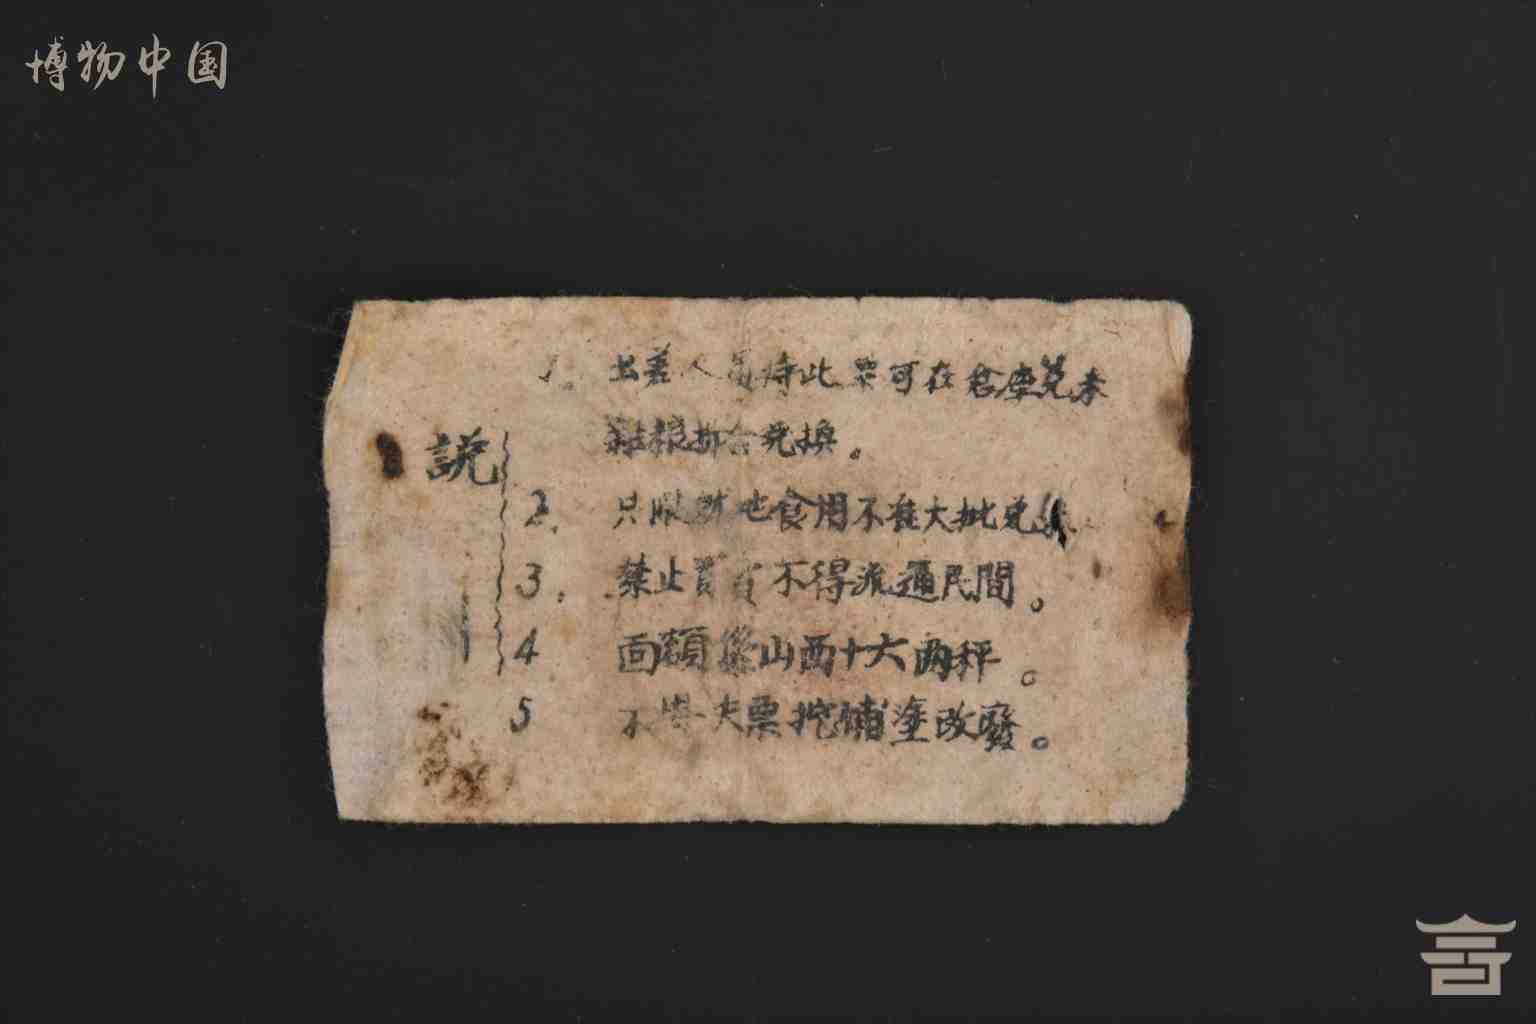 博物中国
説
1. 出差人員持此票可在倉庫兌本
雜糧折合兌換。
2. 只限就地食用不准大批兌
3. 禁止買賣不得流通民間。
4 面額係山西十六两秤。
5 不掛失票挖補塗改廢。